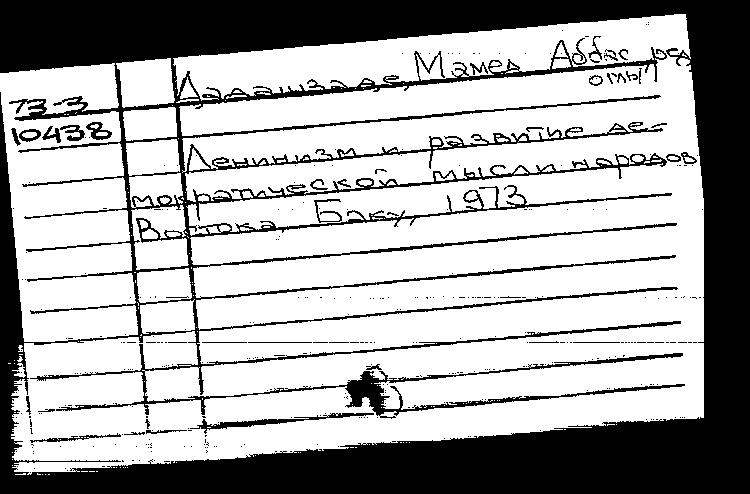 73-3
10438
Дадашзаде, Мамед Аббас ред
Ленинизм и развитие де-
мократической мысли народов
Востока, Баку, 1973